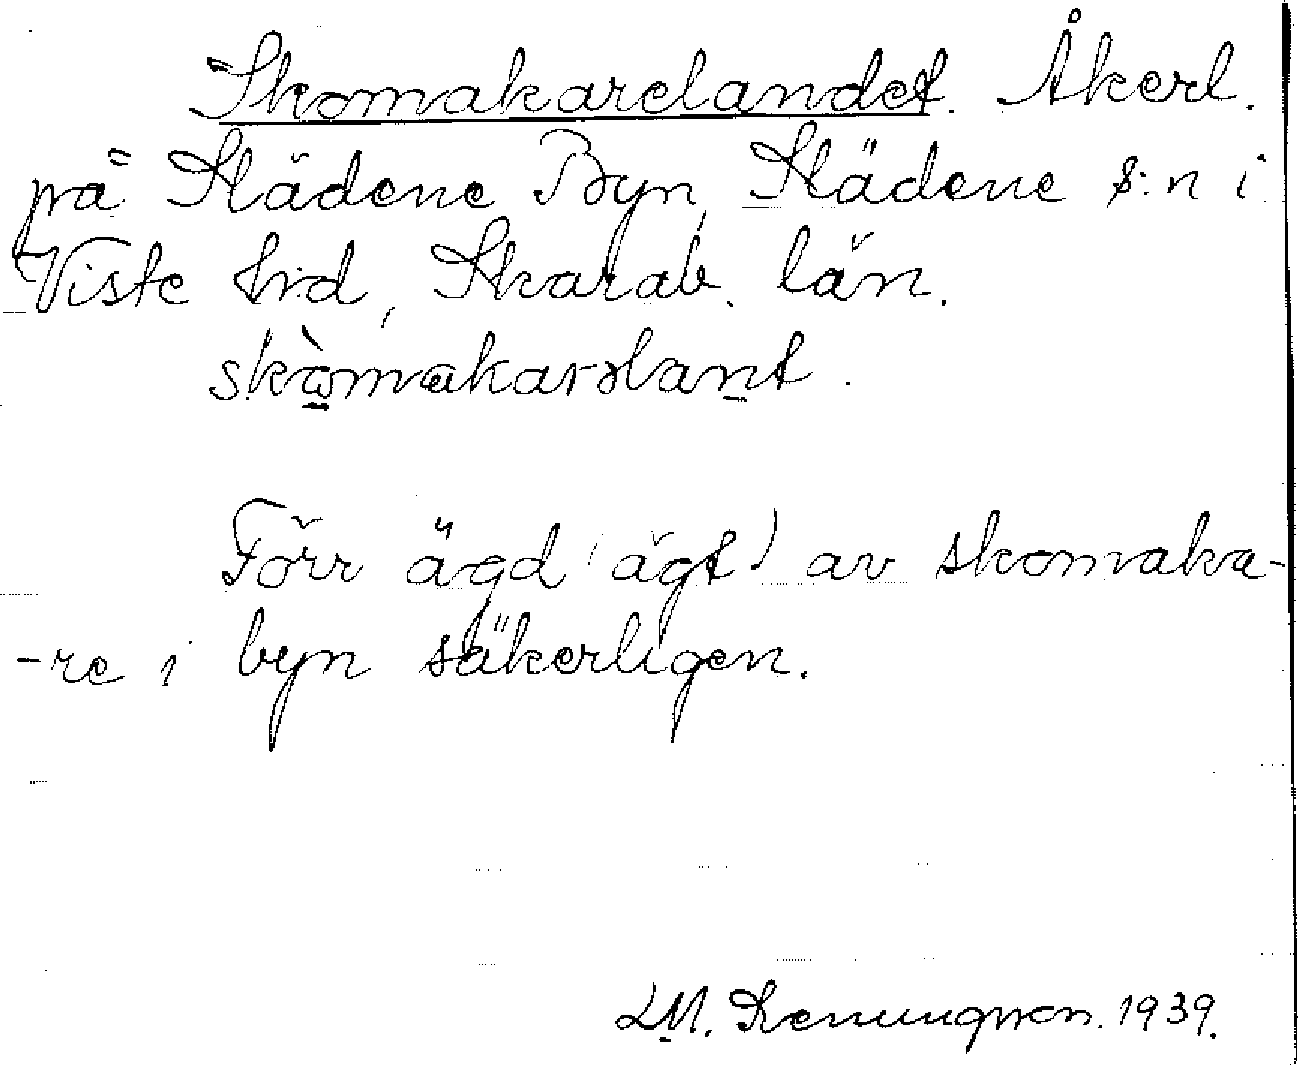 Skomakarelandet. Åkerl.
på Slädene Byn, Slädene s:n i
Viste hrd, Skarab. län.
skòmakarəlant.
Förr ägd (ägt) av skomaka-
-re i byn säkerligen.
LM. 1939.